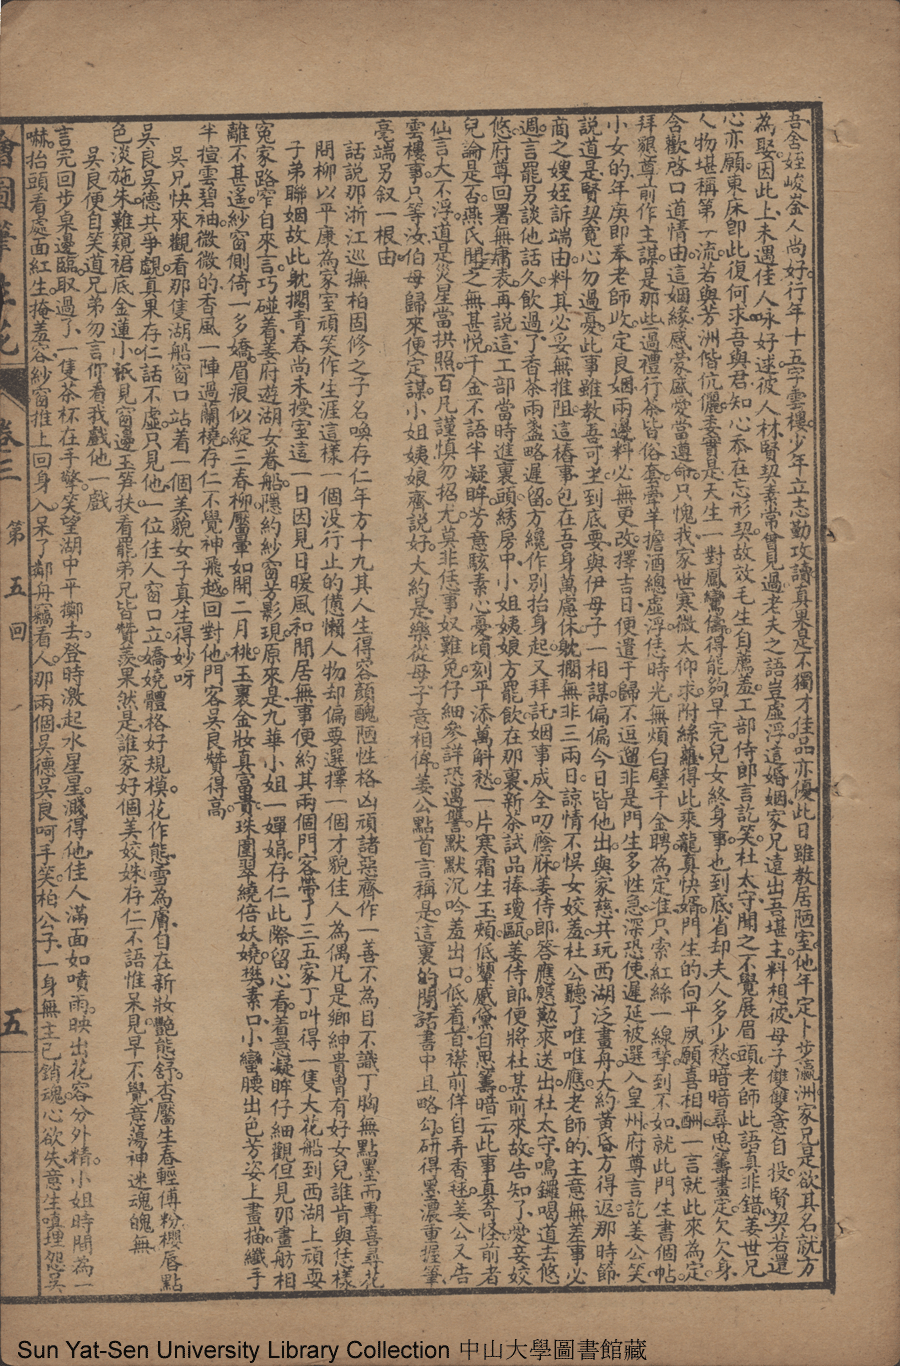 吾舍姪峻峑人尚好行年十五字雲樓少年立志勤攻讀真果是不獨才佳品亦優此日雖教居陋室他年定卜步瀛洲家兄是欲其名就方
為娶因此上未遇佳人咏好逑彼人林賢契素常曾見過老夫之語豈虛浮這婚姻家兄遠出吾堪主料想彼母子雙雙意自投賢契若還
心亦願東床即此復何求吾與君知心忝在忘形契故效毛生自薦羞工部侍郎言訖笑杜太守聞之不覺展眉頭老師此語真非錯姜世兄
人物堪稱第一流若與芳洲偕伉儷委實是天生一對鳳鸞儔得能夠早完兒女終身事也到底省却夫人多少愁暗暗尋思籌畫定欠欠身
含歡啓口道情由這姻緣感蒙感愛當遵命只愧我家世寒微太仰求附絲蘿得此乘龍真快婿門生的向平夙願喜相酬一言就此來為定
拜懇尊前作主謀是那些過禮行茶皆俗套牽羊擔酒總虛浮恁時光無煩白璧千金聘為定准只索紅絲一線牽到不如就此門生書個帖
小女的年庚即奉老師收定良姻兩邊料必無更改擇吉日便遣于歸不逗遛非是門生多性急深恐使遲延被選入皇州府尊言訖姜公笑
說道是賢契寬心勿過憂此事雖教吾可坐到底要與伊母子一相謀偏偏今日皆他出與家慈共玩西湖泛畫舟大約黃昏方得返那時節
商之嫂姪訴端由料其必妥無推阻這樁事包在吾身萬慮休躭擱無非三兩日諒情不悞女姣羞杜公聽了唯唯應老師的主意無差事必
週言罷另談他話久飲過了香茶兩盞略遲留方纔作別抬身起又拜託姻事成全叨廕庥姜侍郎答應慇懃來送出杜太守鳴鑼喝道去悠
悠府尊回署無庸表再說這工部當時進裏頭綉房中小姐姨娘方罷飲在那裏新茶試品捧瓊甌姜侍郎便將杜某前來故告知了愛妾姣
兒論是否燕氏聞之無甚悅千金不語半凝眸芳意駭素心憂頃刻平添萬斛愁一片寒霜生玉頰低顰感黛自思籌暗云此事真奇怪前者
仙言大不浮道是災星當拱照百凡謹慎勿招尤莫非恁事奴難免仔細參詳恐遇讐默默沉吟羞出口低着首襟前佯自弄香毬姜公又告
雲樓事只等汝伯母歸來便定謀小姐姨娘齊說好大約是樂從母子意相侔姜公點首言稱是這裏的閒話書中且略勾研得墨濃重握筆
毫端另叙一根由
話說那浙江巡撫柏固修之子名喚存仁年方十九其人生得容顏醜陋性格凶頑諸惡齊作一善不為目不識丁胸無點墨而專喜尋花
問柳以平康為家室頑笑作生涯這樣一個没行止的憊懶人物却偏要選擇一個才貌佳人為偶凡是鄉紳貴冑有好女兒誰肯與恁樣
子弟聯姻故此躭擱青春尚未授室這一日因見日暖風和閒居無事便約其兩個門客帶了三五家丁叫得一隻大花船到西湖上頑耍
冤家路窄自來言巧碰着姜府遊湖女眷船隱約紗窗芳影現原來是九華小姐一嬋娟存仁此際留心看着意凝眸仔細觀但見那畫舫相
離不甚遙紗窗側倚一多嬌眉痕似綻三春柳靨暈如開二月桃玉裹金妝真富貴珠圍翠繞倍妖嬈樊素口小蠻腰出色芳姿上畫描纖手
半揎雲碧袖微微的香風一陣過蘭橈存仁不覺神飛越回對他門客吳良贊得高
吳兄快來觀看那隻湖船窗口站着一個美貌女子真生得妙呀
吳良吳德共爭觀真果存仁話不虛只見他一位佳人窗口立嬌嬈體格好規模花作態雪為膚自在新妝艷態舒杏靨生春輕傅粉櫻唇點
色淡施朱難窺裙底金蓮小祗見窗邊玉笋扶看罷弟兄皆贊羨果然是誰家好個美姣姝存仁不語惟呆見早不覺意蕩神迷魂魄無
吳良便自笑道兄弟勿言你看我戲他一戲
言完回步桌邊臨取過了一隻茶杯在手擎笑望湖中平擲去登時激起水星星濺得他佳人滿面如噴雨映出花容分外精小姐時間為一
嚇抬頭看處面紅生掩羞容紗窗推上回身入呆了鄰舟竊看人那兩個吳德吳良呵手笑柏公子一身無主已銷魂心欲失意生嗔埋怨吳
繪圖筆生花
卷三
第五回
五
Sun Yat-Sen University Library Collection 中山大學圖書館藏